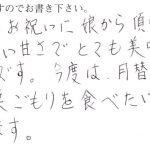 すのでお書き下さい。
お祝いに娘から頂
い甘さでとても美
です。今度は、月替
ごもりを食べたい
ます。